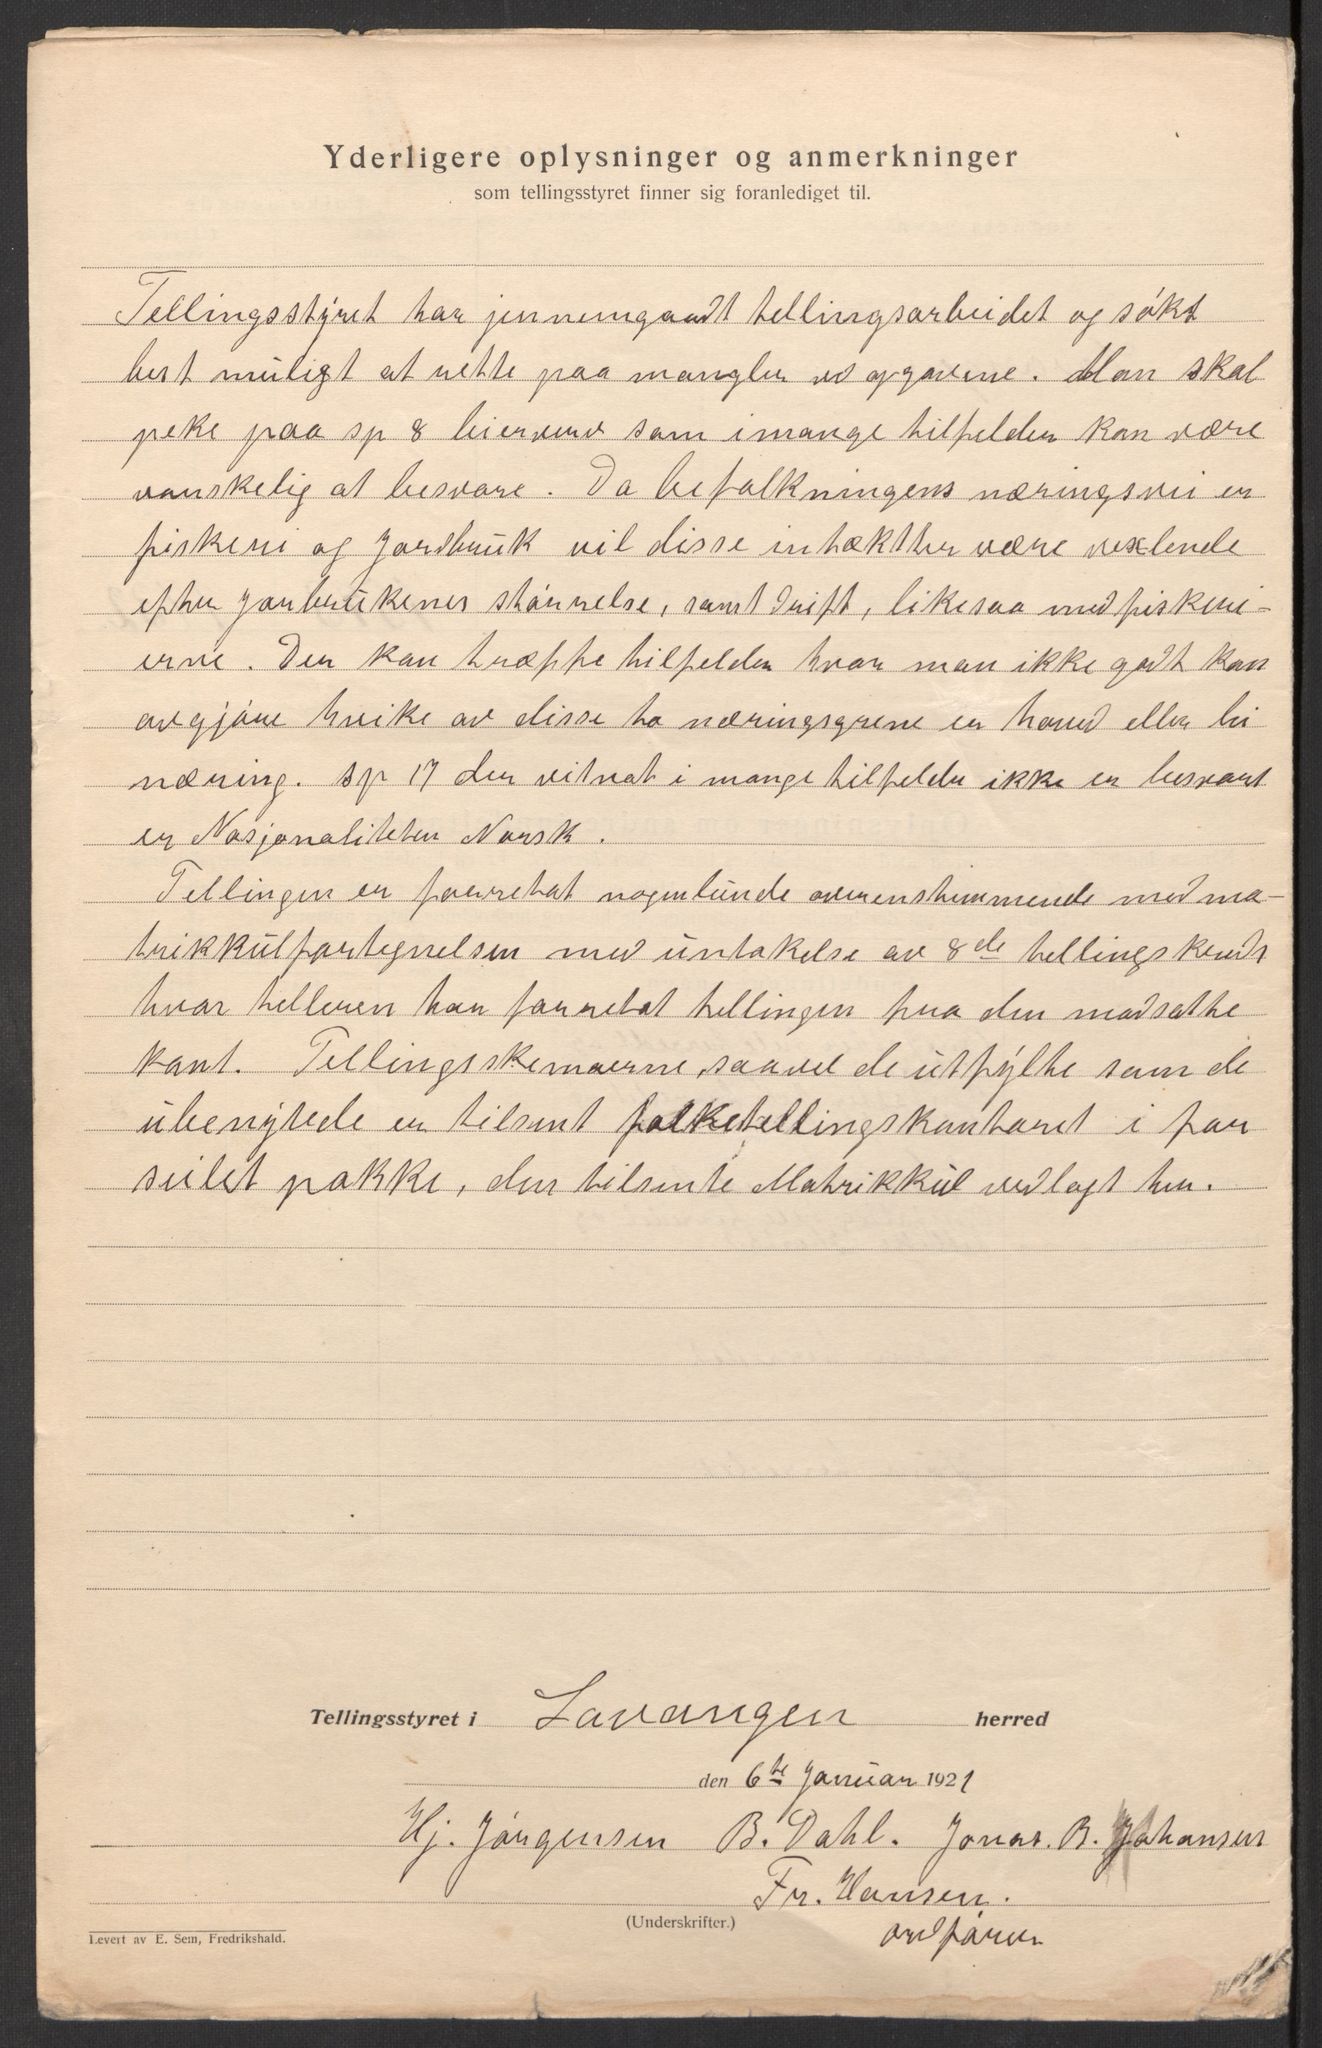 Yderligere oplysninger og anmerkninger
som tellingsstyret finner sig foranlediget til.
Tellingsstyret har jennemgaadt tellingsarbeidet og søkt
best muligt at rette paa mangler ved opgavene. Man skal
peke paa sp 8 bierverv som i mange tilfelder kan være
vanskelig at besvare. Da befolkningens næringsvei er
fiskeri og Jordbruk vil disse intæktter være vexlende
efter Jorbrukenes størrelse, samt drift, likesaa med fiskeri-
erne. Der kan træffe tilfelder hvor man ikke godt kan
avgjøre hvike av disse to næringsgrene er hoved eller bi
næring. sp 17 der vitnat i mange tilfelder ikke er besvart
er Nasjonaliteten Norsk.
Tellingen er foerretat nogenlunde overenstemmende med ma-
trikkulfortegnelsen med untakelse av 8de tellingskreds
hvor telleren har forretat tellingen fraa den modsatte
kant. Tellingsskemaerne, saavel de utfylte som de
ubenytede er tilsent folketellingskontoret i for
seilet pakke, den tilsente Matrikkul vedlagt her.
Tellingsstyret i Lavangen herred
den 6te Januar 1921
Hj. Jørgensen B. Dahl. Jonas. B. Johansen
Fr. Hansen.
(Underskrifter.)
ordfører
Levert av E. Sem, Fredrikshald.